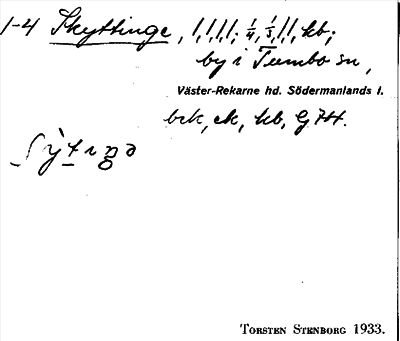 1-4 Skyttinge, 1,1,1,1; 1/4, 1/3, 1,1, kb;
by i Tumbo sn,
Väster-Rekarne hd. Södermanlands l.
bek, ek, kb, GJH.
TORSTEN STENBORG 1933.